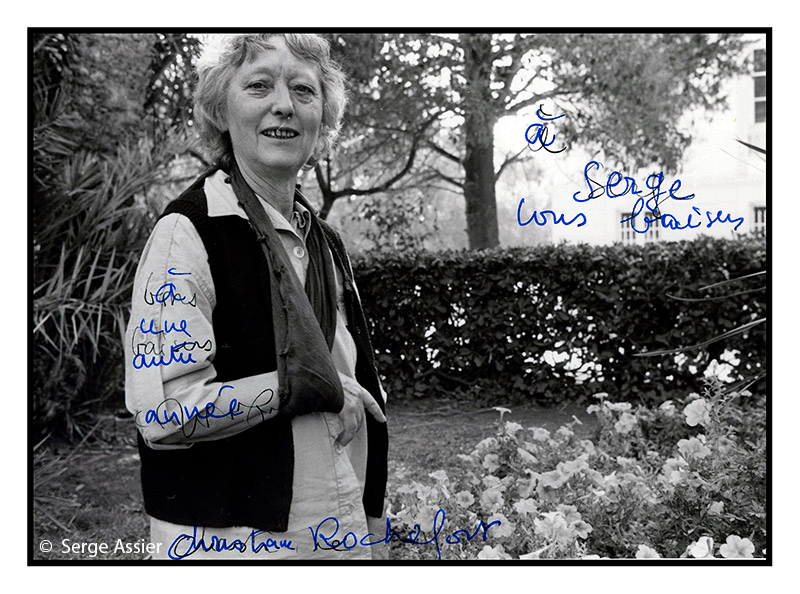 à
Serge
tous baisers
à
une
autre
année
Christiane Rochefort
© Serge Assier